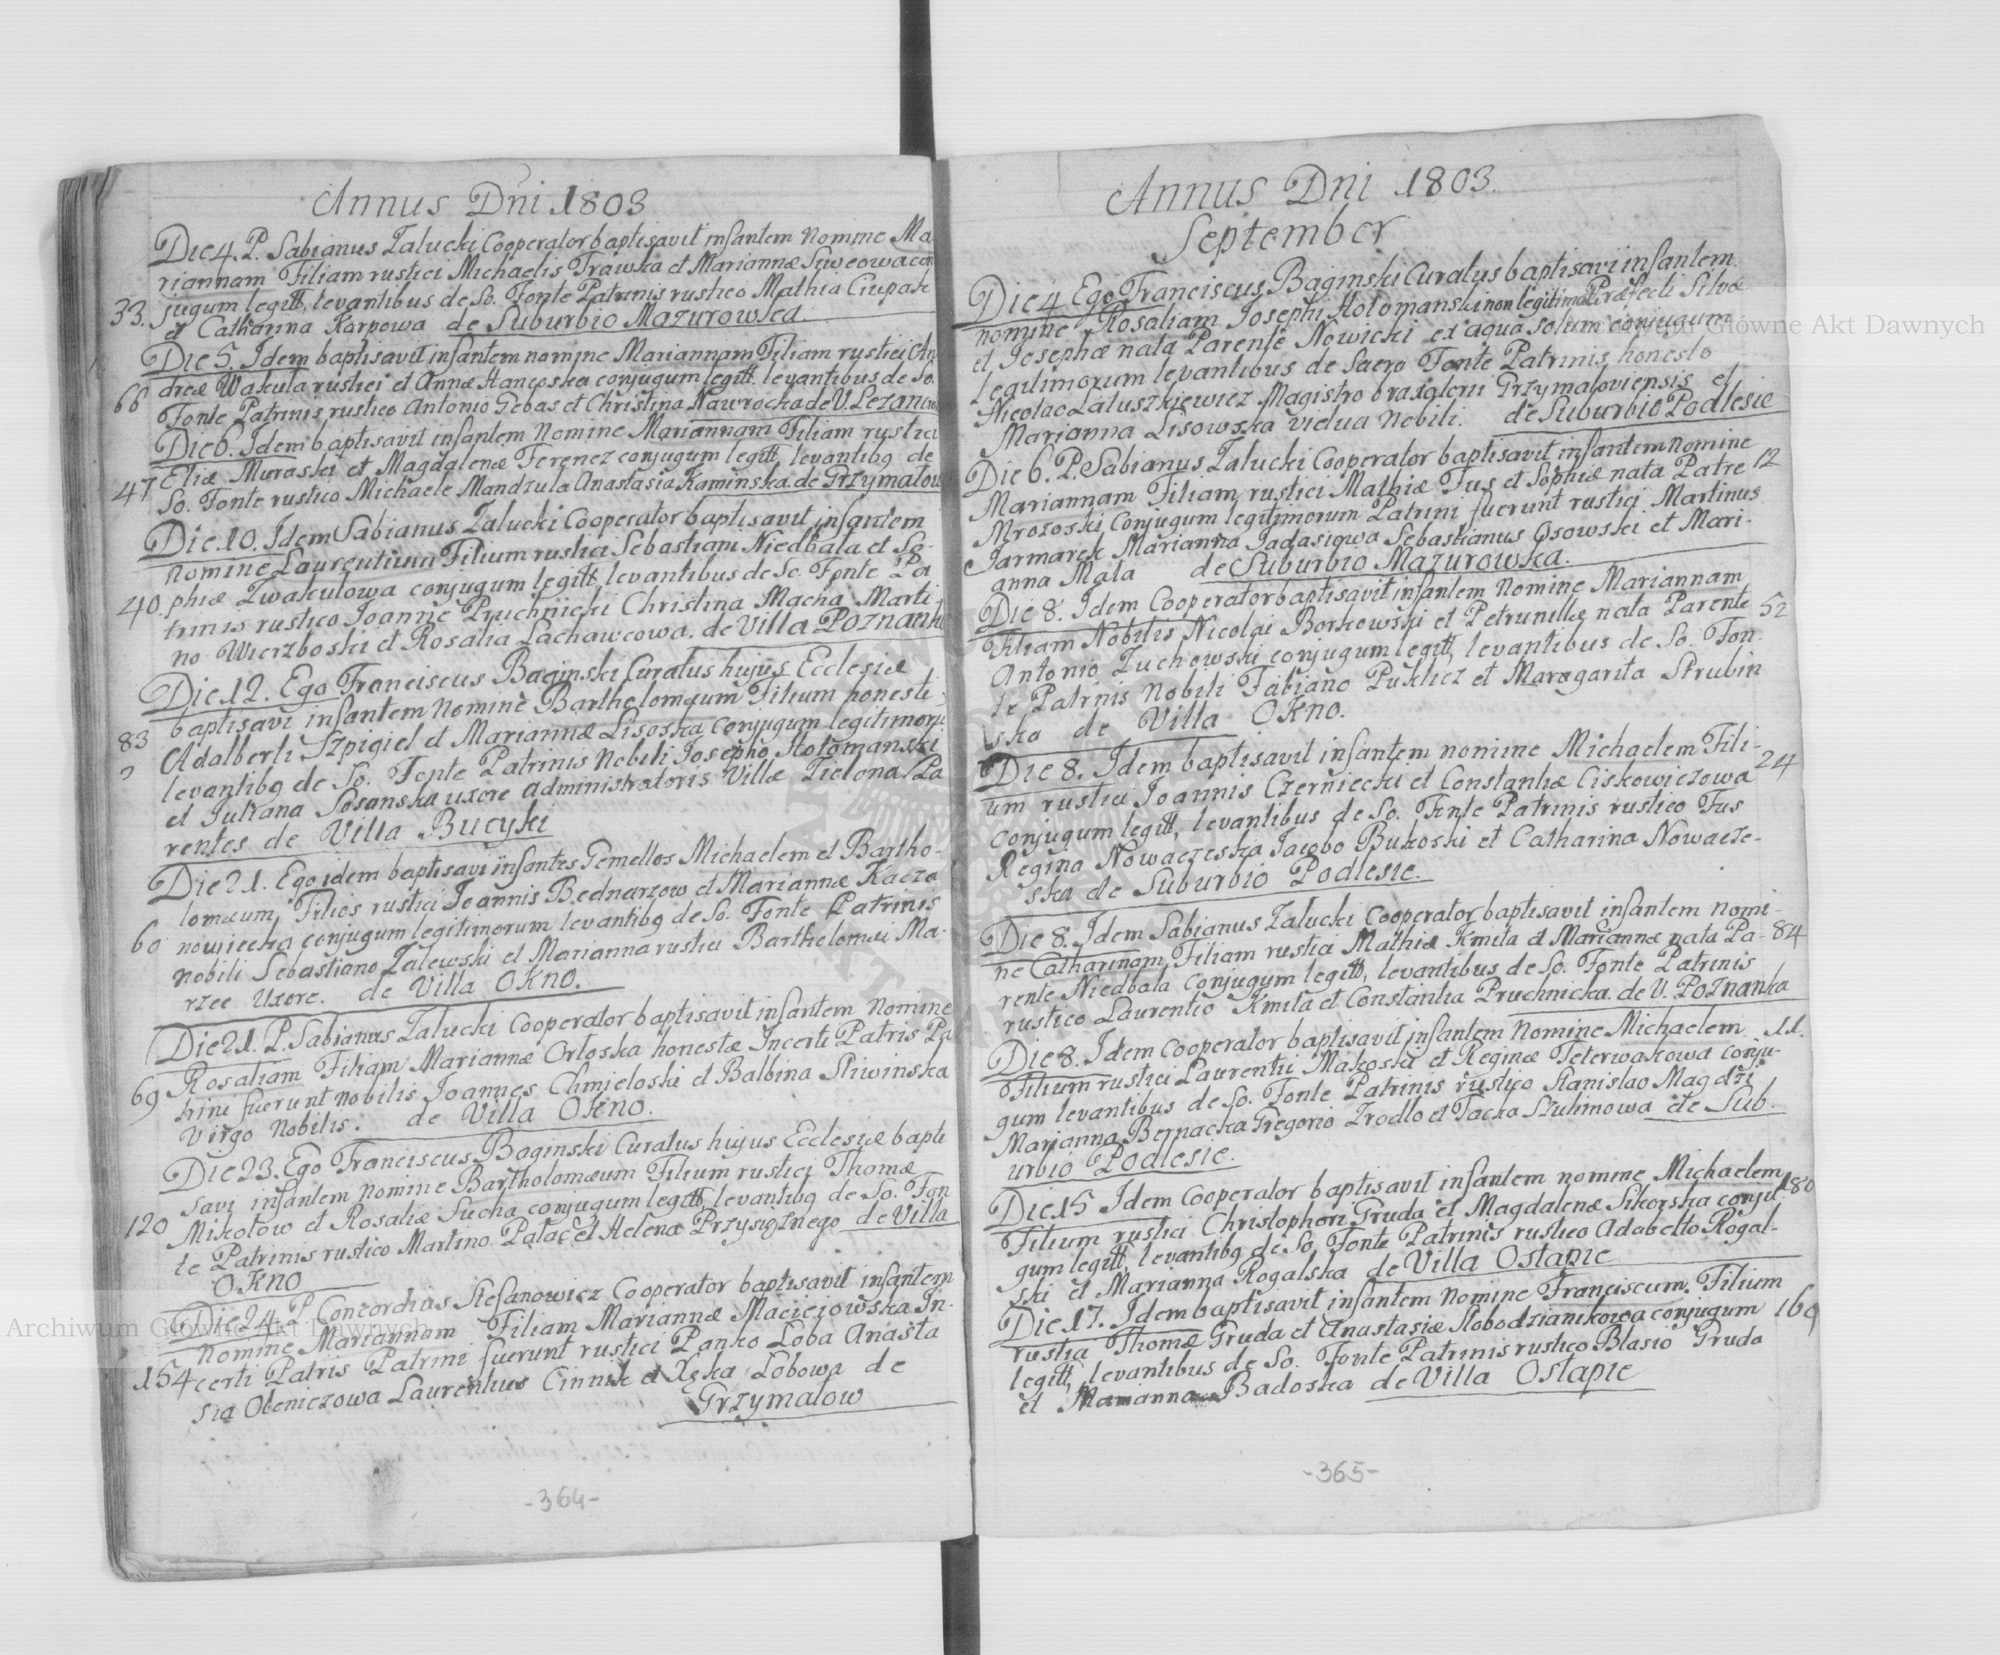 Annus Dni 1803
Die 4. P. Sabianus Zalucki Cooperator baptisavit infantem nomine Ma
riannam Filiam rustici Michaelis Trawka et Mariannæ con
33. jugum legitt, levantibus de So. Fonte Patrinis rustico Mathia Ciupak
et Catharina Karpowa de Suburbio Mazurowka
Die 5. Idem baptisavit infantem nomine Mariannam Filiam rustici An
68 dreæ Wakula rustici et Annæ conjugum legitt. levantibus de So.
Fonte Patrinis rustico Antonio Gebas et Christina Nawrocka de V. Lezanow
Die 6. Idem baptisavit infantem Nomine Mariannam Filiam rustici
Eliæ Muraski et Magdalenæ Ferenez conjugum legitt, levantibq de
47 So. Fonte rustico Michaele Mandzula Anastasia Kaminska de Grzymalow
Die 10. Idem Sabianus Zalucki Cooperator baptisavit infantem
nomine Laurentium Filium rustici Sebastiani Niedbala et So
40. phiæ Zwakulowa conjugum legitt, levantibus de So. Fonte Pa
trinis rustico Joanne Pruchnicki Christina Macha Marti-
no Wierzboski et Rosalia Lachawcowa. de Villa Poznank
Die 12. Ego Franciscus Baginski Curatus hujus Ecclesiæ
baptisavi infantem Nomine Bartholomæum Filium honesti
83 Adalberti Szpigiel et Mariannæ Lisoska conjugum legitimoru
levantibq de So. Fonte Patrinis Nobili Josepho Hołomanski
et Juliana Sosanska uxore administratoris Villæ Zielona Pa
rentes de Villa Bucyki
Die 21. Ego idem baptisavi infantes Gemellos Michaelem et Bartho-
lomæum, Filios rustici Joannis Bednarzow et Mariannæ Kacza
60 nowiecka conjugum legitimorum levantibq de So. Fonte Patrinis
nobili Sebastiano Zalewski et Marianna rustici Bartholomæi Ma-
rzec Uxore. de Villa OKNO.
Die 21. P. Sabianus Zalucki Cooperator baptisavit infantem Nomine
Rosaliam Filiam Mariannæ Orłoska honestæ Incerti Patris Pa
69 trini fuerunt nobilis Joannes Chmieloski et Balbina Sliwinska
Virgo Nobilis. de Villa OKNO.
Die 23. Ego Franciscus Baginski Curatus hujus Ecclesiæ bapti
savi infantem Nomine Bartholomæum Filium rustici Thomæ
120 Mikołow et Rosaliæ Sucha conjugum legitt, levantibq de So. Fon
te Patrinis rustico Martino Pałac et Helena Przysiężnego de Villa
OKNO
Die 24. P. Concordius Stefanowicz Cooperator baptisavit infantem
nomine Mariannam Filiam Mariannæ Maciejowska In-
154 certi Patris Patrini fuerunt rustici Panko Loba Anasta
sia Oleniczowa Laurentius Cinnik et Xęka Łobowa de
Grzymalow
-364-
Annus Dni 1803.
September
Die 4 Ego Franciscus Baginski Curatus baptisavi infantem
nomine Rosaliam Josephi Hołomanski non legitimat. Præfecti Silvæ
et Josephæ nata Parente Nowicki ex aqua solum conjugum
legitimorum levantibus de Sacro Fonte Patrinis honesto
Nicolao Latuszkiewicz Magistro braxatorii Grzymaloviensis et
Marianna Lisowska vidua Nobili. de Suburbio Podlesie
Die 6. P. Sabianus Zalucki Cooperator baptisavit infantem Nomine
Mariannam Filiam rustici Mathiæ Fus et Sophiæ nata Patre 12
Mrozoski Conjugum legitimorum Patrini fuerunt rustici Martinus
Jarmarek Marianna Jadasiowa Sebastianus Osowski et Mari-
anna Mala de Suburbio Mazurowka.
Die 8. Idem Cooperator baptisavit infantem Nomine Mariannam
Filiam Nobilis Nicolai Borkowski et Petrunillæ nata Parente 52
Antonio Zuchowski conjugum legitt, levantibus de So. Fon-
te Patrinis Nobili Fabiano Puklicz et Maragarita Strubin
ska de Villa OKNO.
Die 8. Idem baptisavit infantem nomine Michaelem Fili-
um rustici Joannis Czerniecki et Constantiæ Ciskowiczowa 24
Conjugum legitt, levantibus de So. Fonte Patrinis rustico Fus
Regina Nowaczeska Jacobo Bukoski et Catharina Nowacze-
ska de Suburbio Podlesie.
Die 8. Idem Sabianus Zalucki Cooperator baptisavit infantem Nomi-
ne Catharinam, Filiam rustici Mathiæ Kmita et Mariannæ nata Pa- 84
rente Niedbala conjugum legitt, levantibus de So. Fonte Patrinis
rustico Laurentio Kmita et Constantia Pruchnicka. de V. Poznanka
Die 8. Idem Cooperator baptisavit infantem Nomine Michaelem 11.
Filium rustici Laurentii Makoski et Reginæ Teterwakowa conju-
gum levantibus de So. Fonte Patrinis rustico Stanislao Magdzi
Marianna Bernacka Gregorio Zrodło et Tacka Szulimowa de Sub
urbio Podlesie.
Die 15 Idem Cooperator baptisavit infantem nomine Michaelem
Filium rustici Christophori Gruda et Magdalenæ Sikorska conju 180
gum legitt, levantibq de So. Fonte Patrinis rustico Adabelto Rogal-
ski et Marianna Rogalska de Villa Ostapie
Die 17. Idem baptisavit infantem Nomine Franciscum. Filium
rustici Thomæ Gruda et Anastasiæ Slobodzianikowa conjugum 169
legitt, levantibus de So. Fonte Patrinis rustico Blasio Gruda
et Marianna Badoska de Villa Ostapie
-365-
Archiwum Główne Akt Dawnych
Archiwum Główne Akt Dawnych